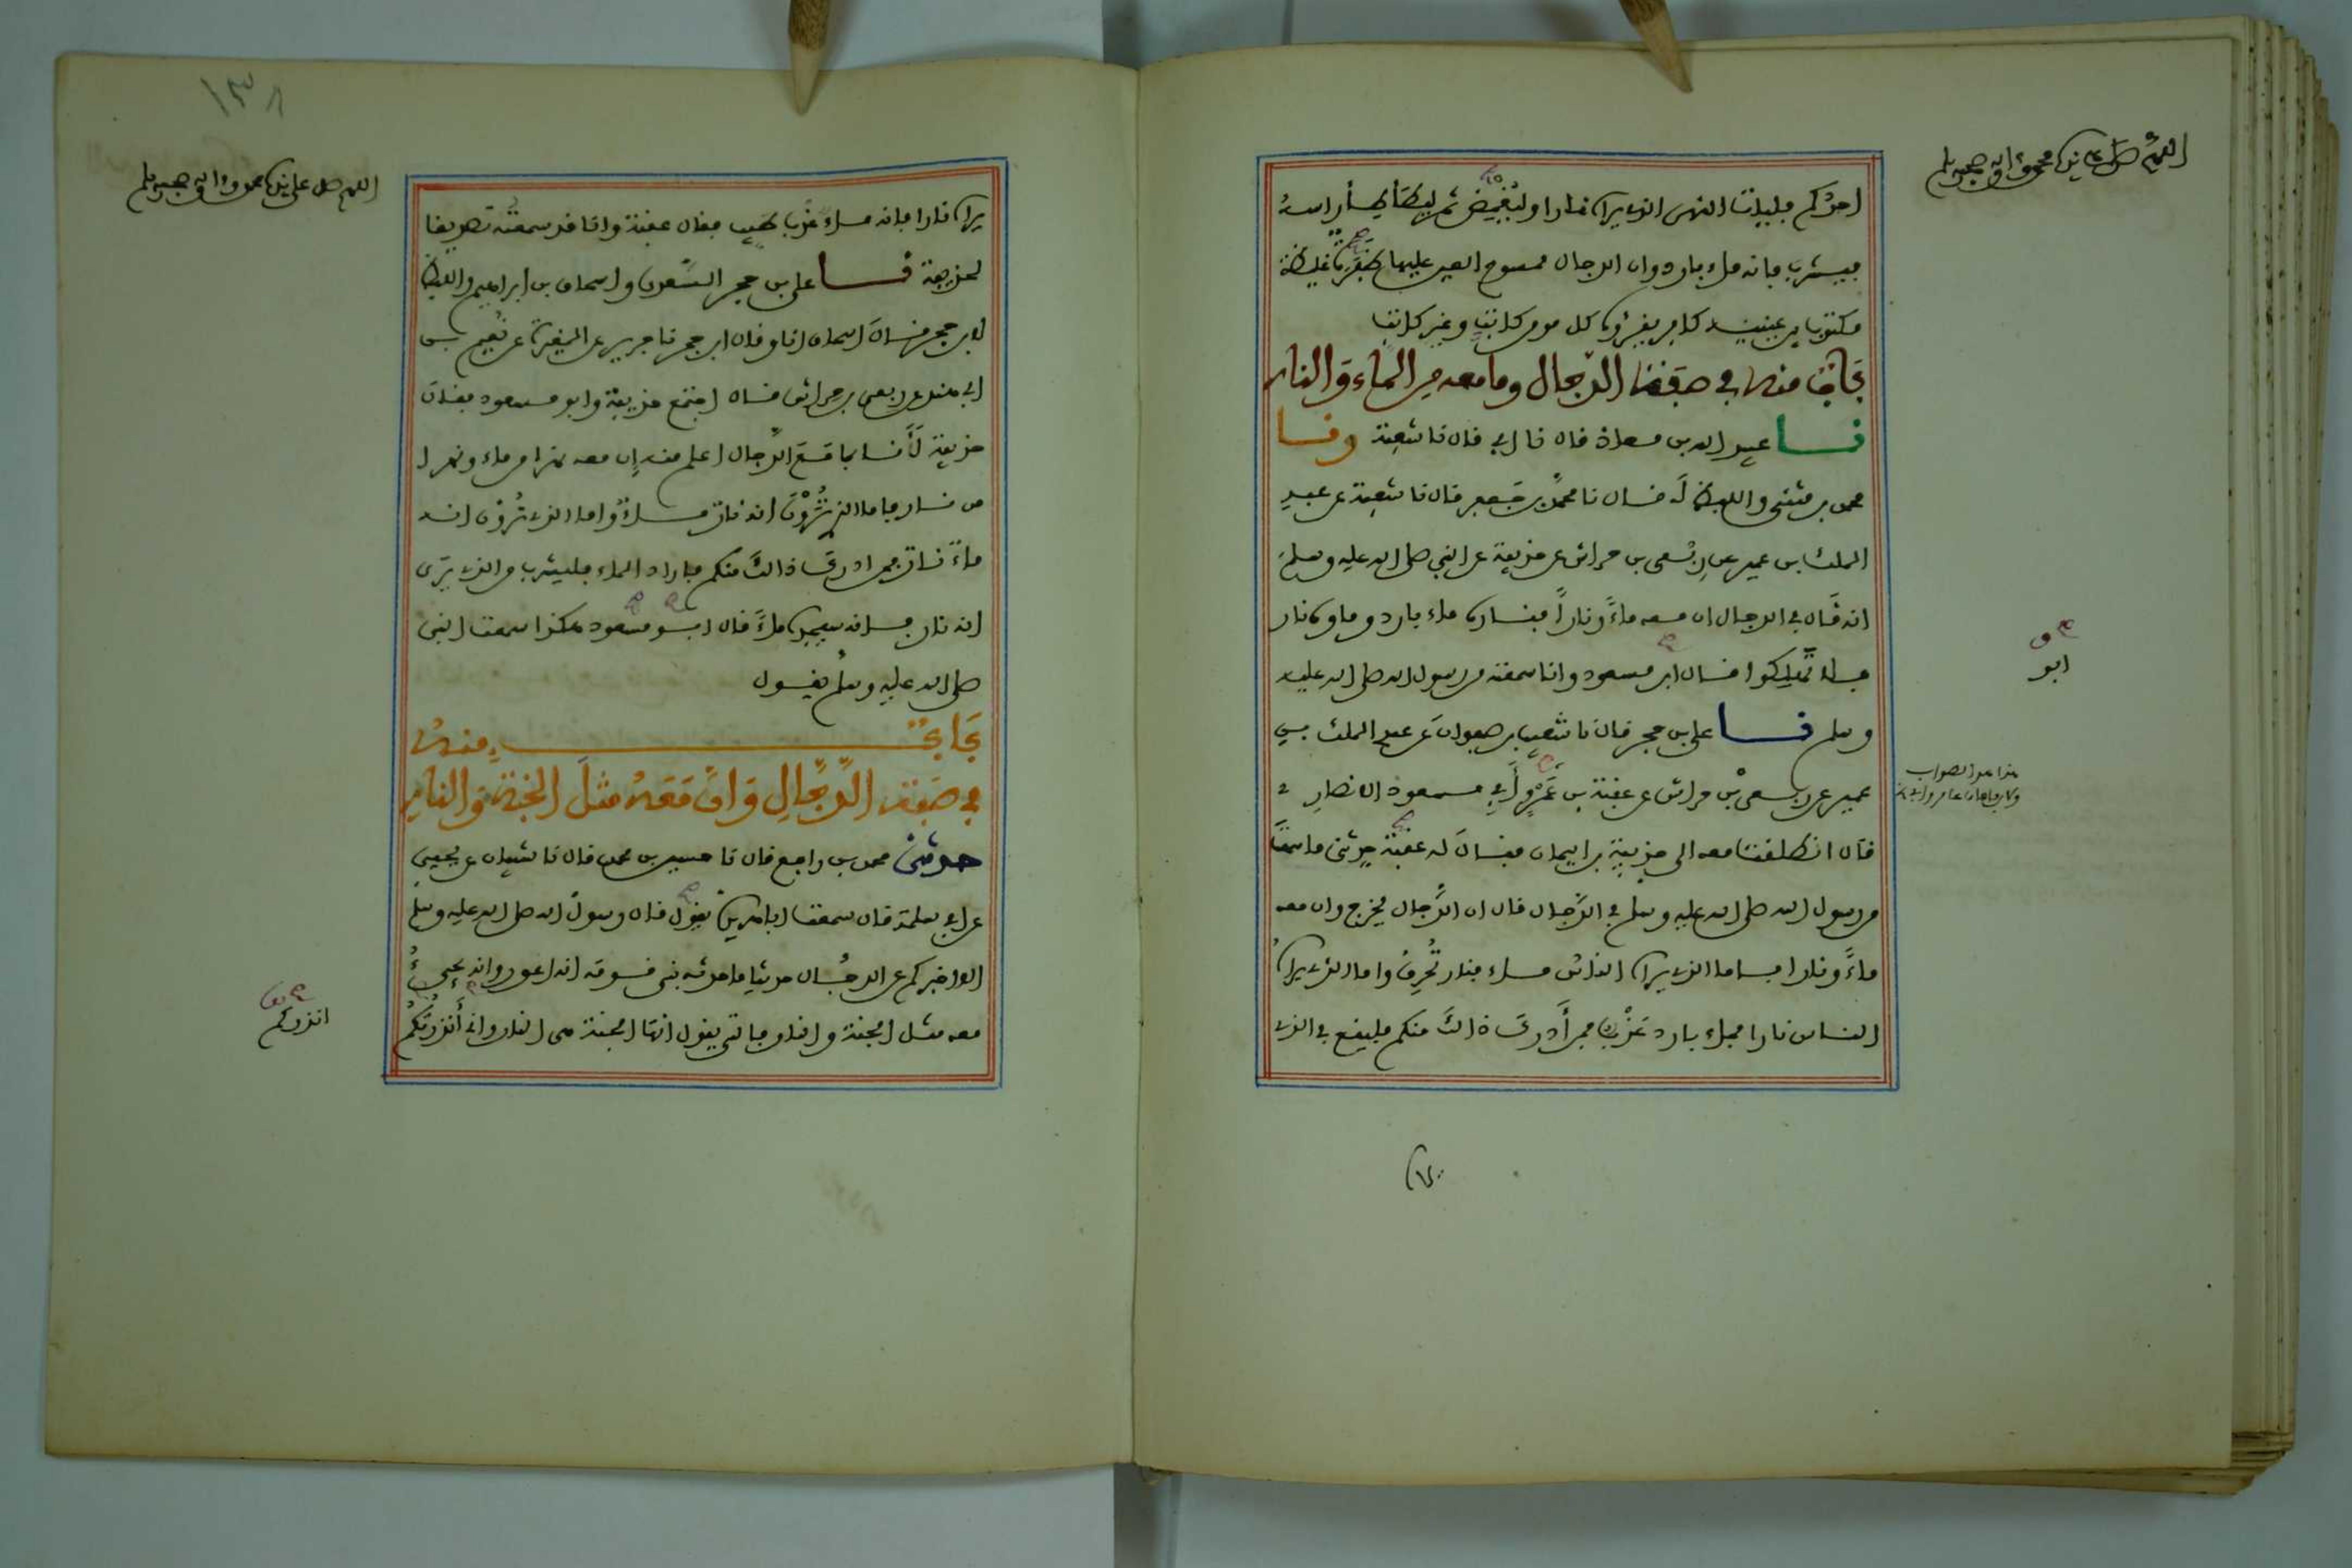 اللهم صل على نبينا محمد وآله وصحبه وسلم
احدكم فليات النهر الذي يراه نارا وليغمض ثم ليطأطئ راسه
فيشرب فانه ماء بارد وان الدجال ممسوح العين عليها ظفرة غليظة
مكتوب بين عينيه كافر يقرؤه كل مومن كاتب وغير كاتب
باب منه في صفة الدجال وما معه من الماء والنار
نا عبيد الله بن معاذ قال نا ابي قال نا شعبة ونا
محمد بن مثنى واللفظ له قال نا محمد بن جعفر قال نا شعبة عن عبد
الملك بن عمير عن ربعي بن حراش عن حذيفة عن النبي صلى الله عليه وسلم
انه قال في الدجال ان معه ماءً وناراً فناره ماء بارد وماؤه نار
فلا تهلكوا قال ابو مسعود وانا سمعته من رسول الله صلى الله عليه
وسلم نا علي بن حجر قال نا شعيب بن صفوان عن عبد الملك بن
عمير عن ربعي بن حراش عن عقبة بن عمرو أبي مسعود الانصاري
قال انطلقت معه الى حذيفة بن اليمان فقال له عقبة حدثني ما سمعت
من رسول الله صلى الله عليه وسلم في الدجال قال ان الدجال يخرج وان معه
ماءً ونارا فاما الذي يراه الناس ماء فنار تحرق واما الذي يراه
الناس نارا فماء بارد عذب فمن أدرك ذالك منكم فليقع في الذي
ابو
هذا هو الصواب
١٣٨
اللهم صل على نبينا محمد وآله وصحبه وسلم
يراه نارا فانه ماء عذب طيب فقال عقبة وانا قد سمعته تصديقا
لحذيفة نا علي بن حجر السعدي واسحاق بن ابراهيم واللفظ
لابن حجر قال اسحاق انا وقال ابن حجر نا جرير عن المغيرة عن نعيم بن
ابي هند عن ربعي بن حراش قال اجتمع حذيفة وابو مسعود فقال
حذيفة لأنا بما مع الدجال اعلم منه إن معه نهرا من ماء ونهرا
من نار فاما الذي ترون انه نار ماء واما الذي ترون انه
ماء نار فمن ادرك ذالك منكم فاراد الماء فليشرب من الذي يرى
انه نار فانه سيجده ماءً قال ابو مسعود هكذا سمعت النبي
صلى الله عليه وسلم يقول
باب منه
في صفة الدجال وان معه مثل الجنة والنار
حدثني محمد بن رافع قال نا حسين بن محمد قال نا شيبان عن يحيى
عن ابي سلمة قال سمعت ابا هريرة يقول قال رسول الله صلى الله عليه وسلم
الا اخبركم عن الدجال حديثا ما حدثه نبي قومه انه اعور وانه يجيء
معه مثل الجنة والنار فالتي يقول انها الجنة هي النار واني أنذرتكم
انذركم